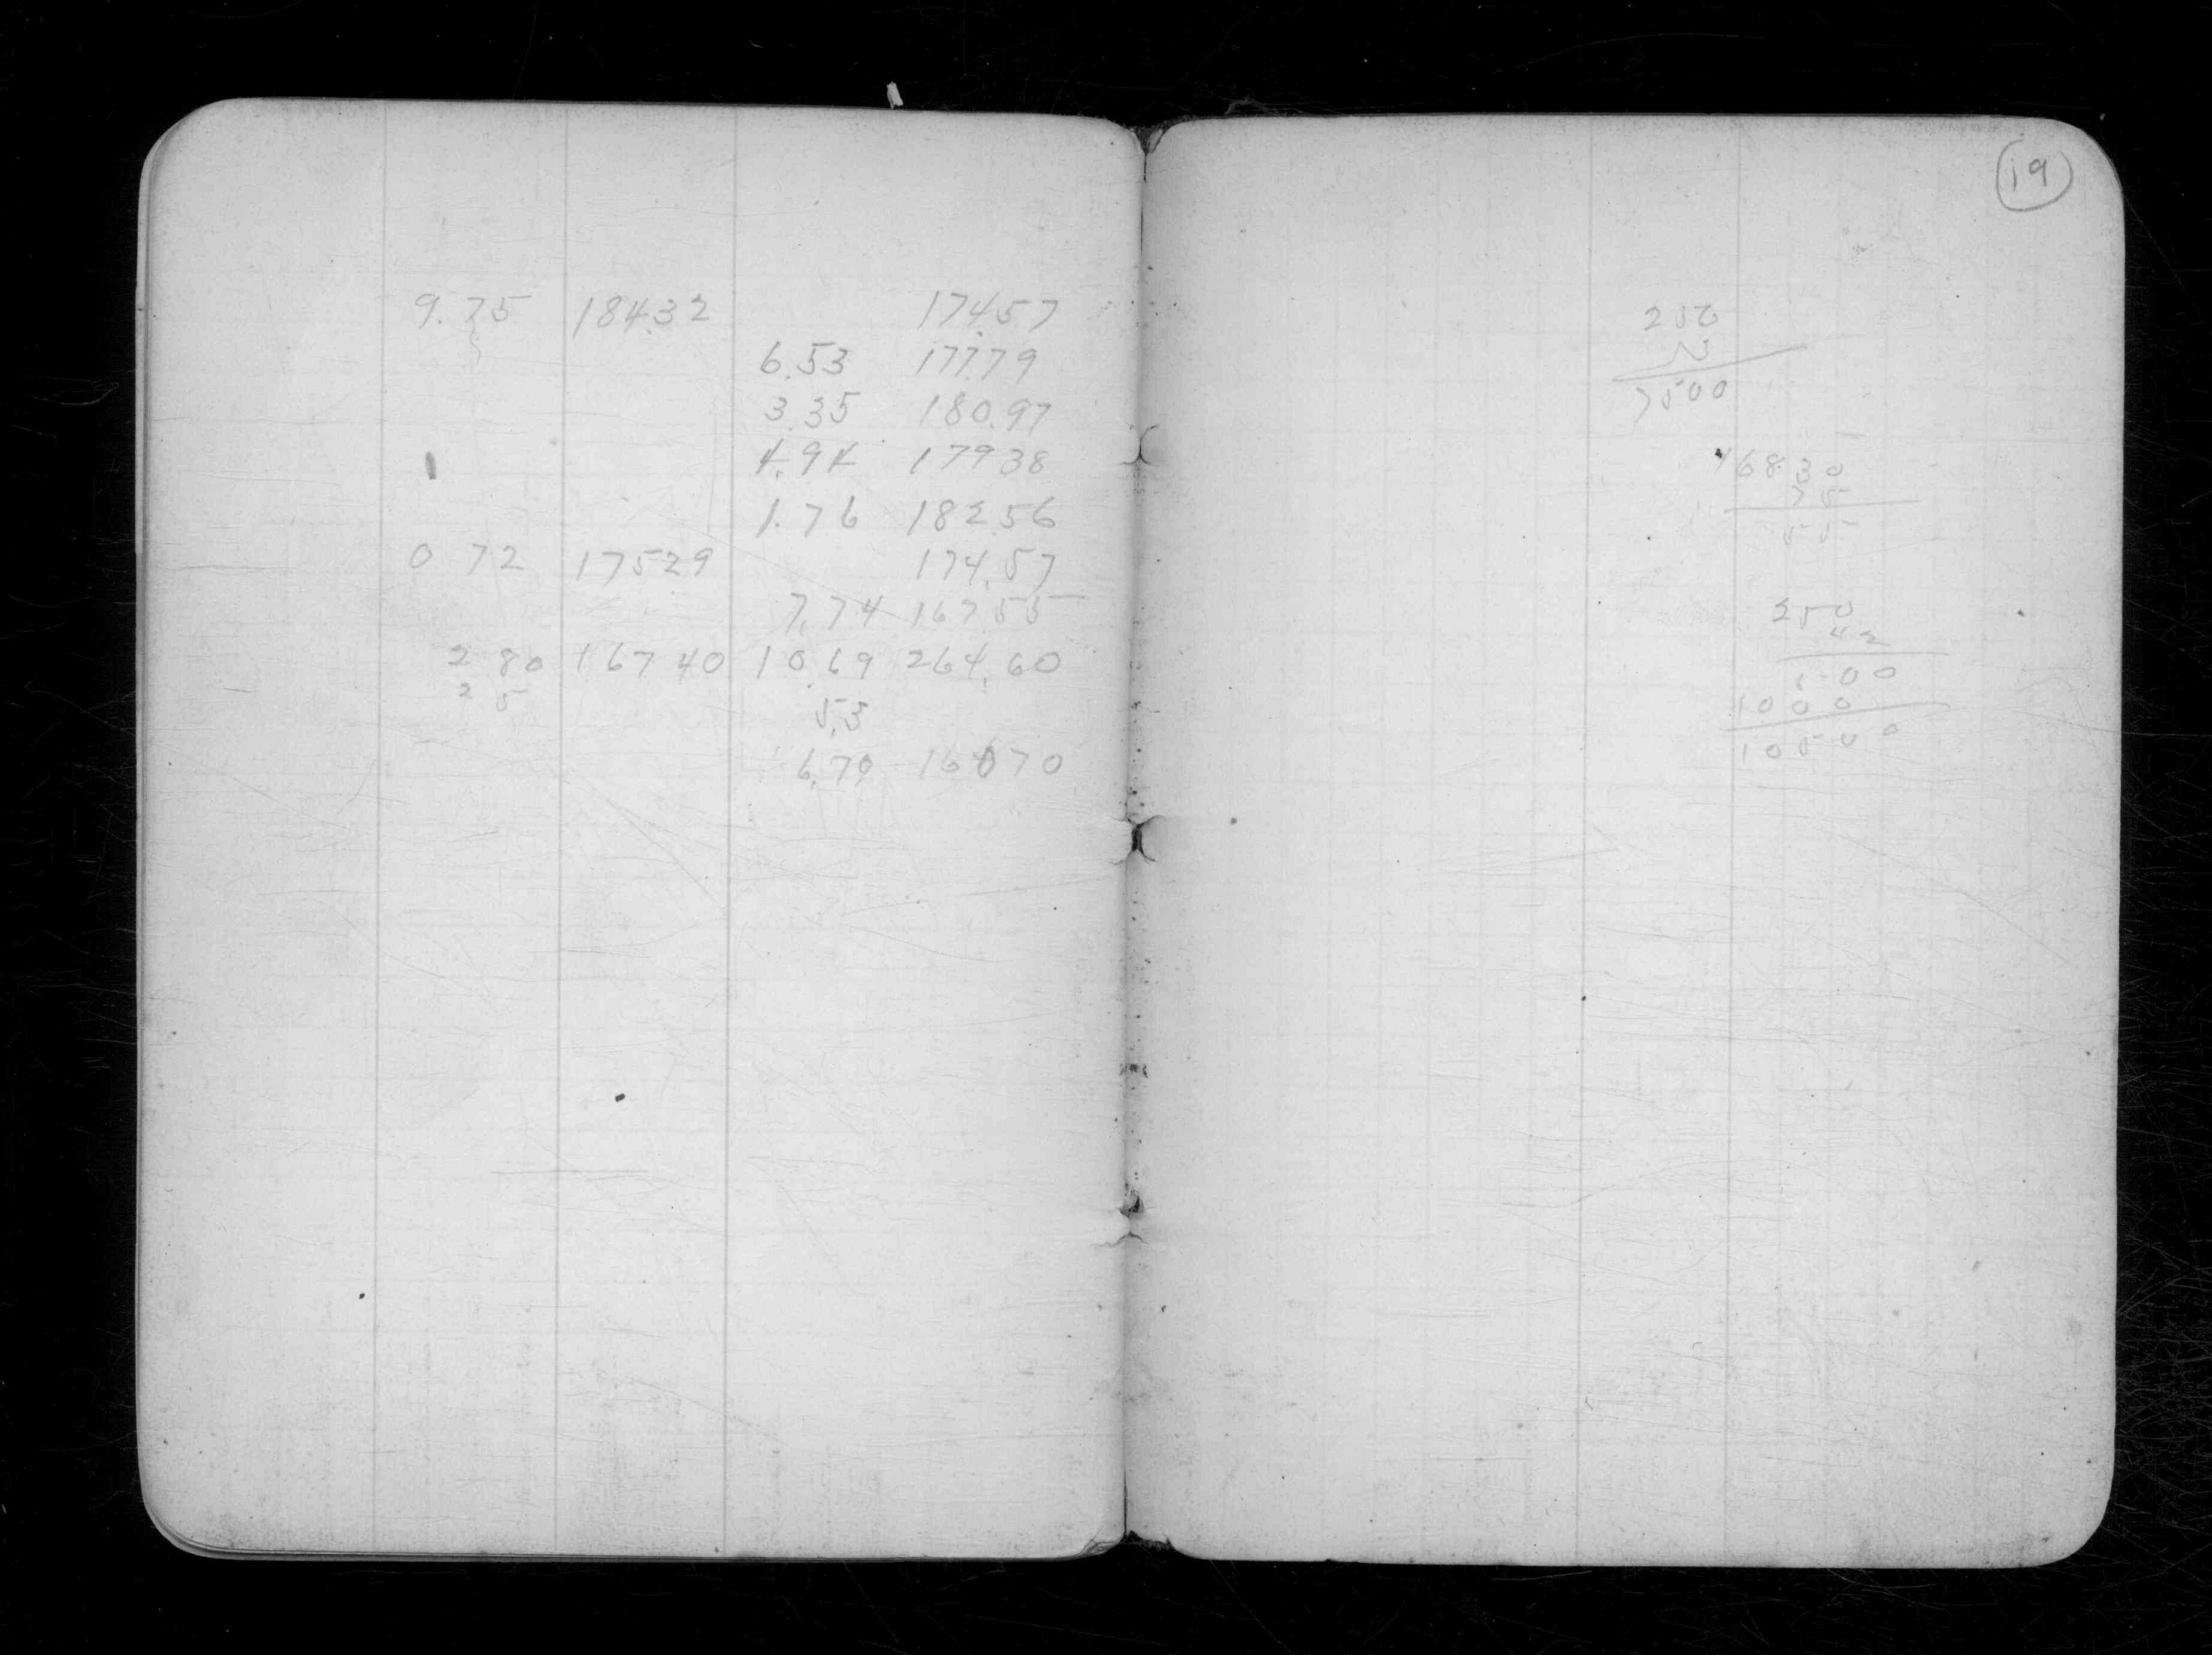 9.75 184.32 174.57
6.53 177.79
3.35 180.97
4.94 179 38
1.76 182.56
0 72 175 29 174.57
7.74 167 55
2 80 167 40 10.69 264.60
2 5
5.3
6.70 16 0 70
19
250
7500
168.30
250
42
500
1000
10500